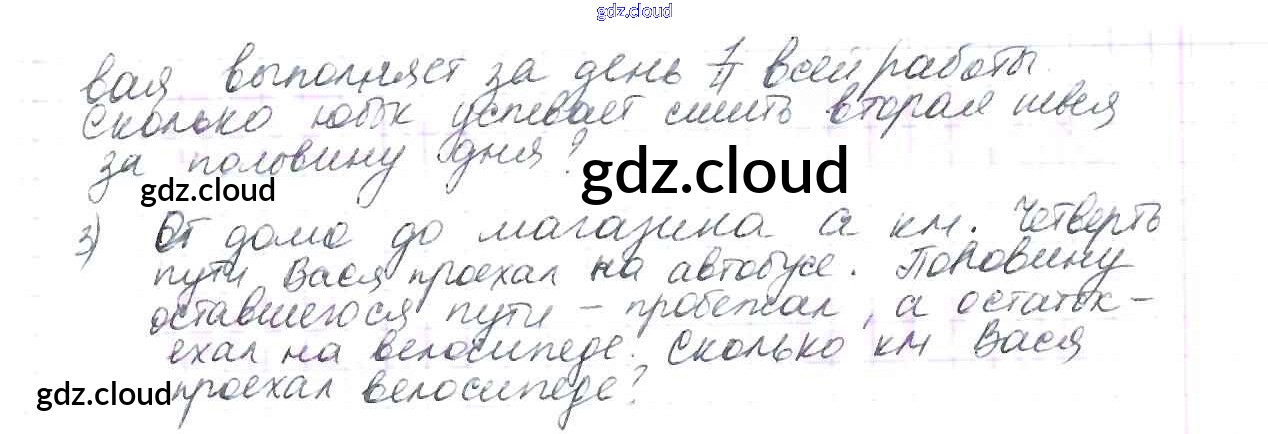 gdz.cloud
вая выполняет за день 1/11 всей работы.
Сколько юбок успевает сшить вторая швея
за половину дня?
gdz.cloud
gdz.cloud
3) От дома до магазина а км. Четверть
пути Вася проехал на автобусе. Половину
оставшегося пути – пробежал, а остаток –
ехал на велосипеде. Сколько км Вася
проехал велосипеде?
gdz.cloud